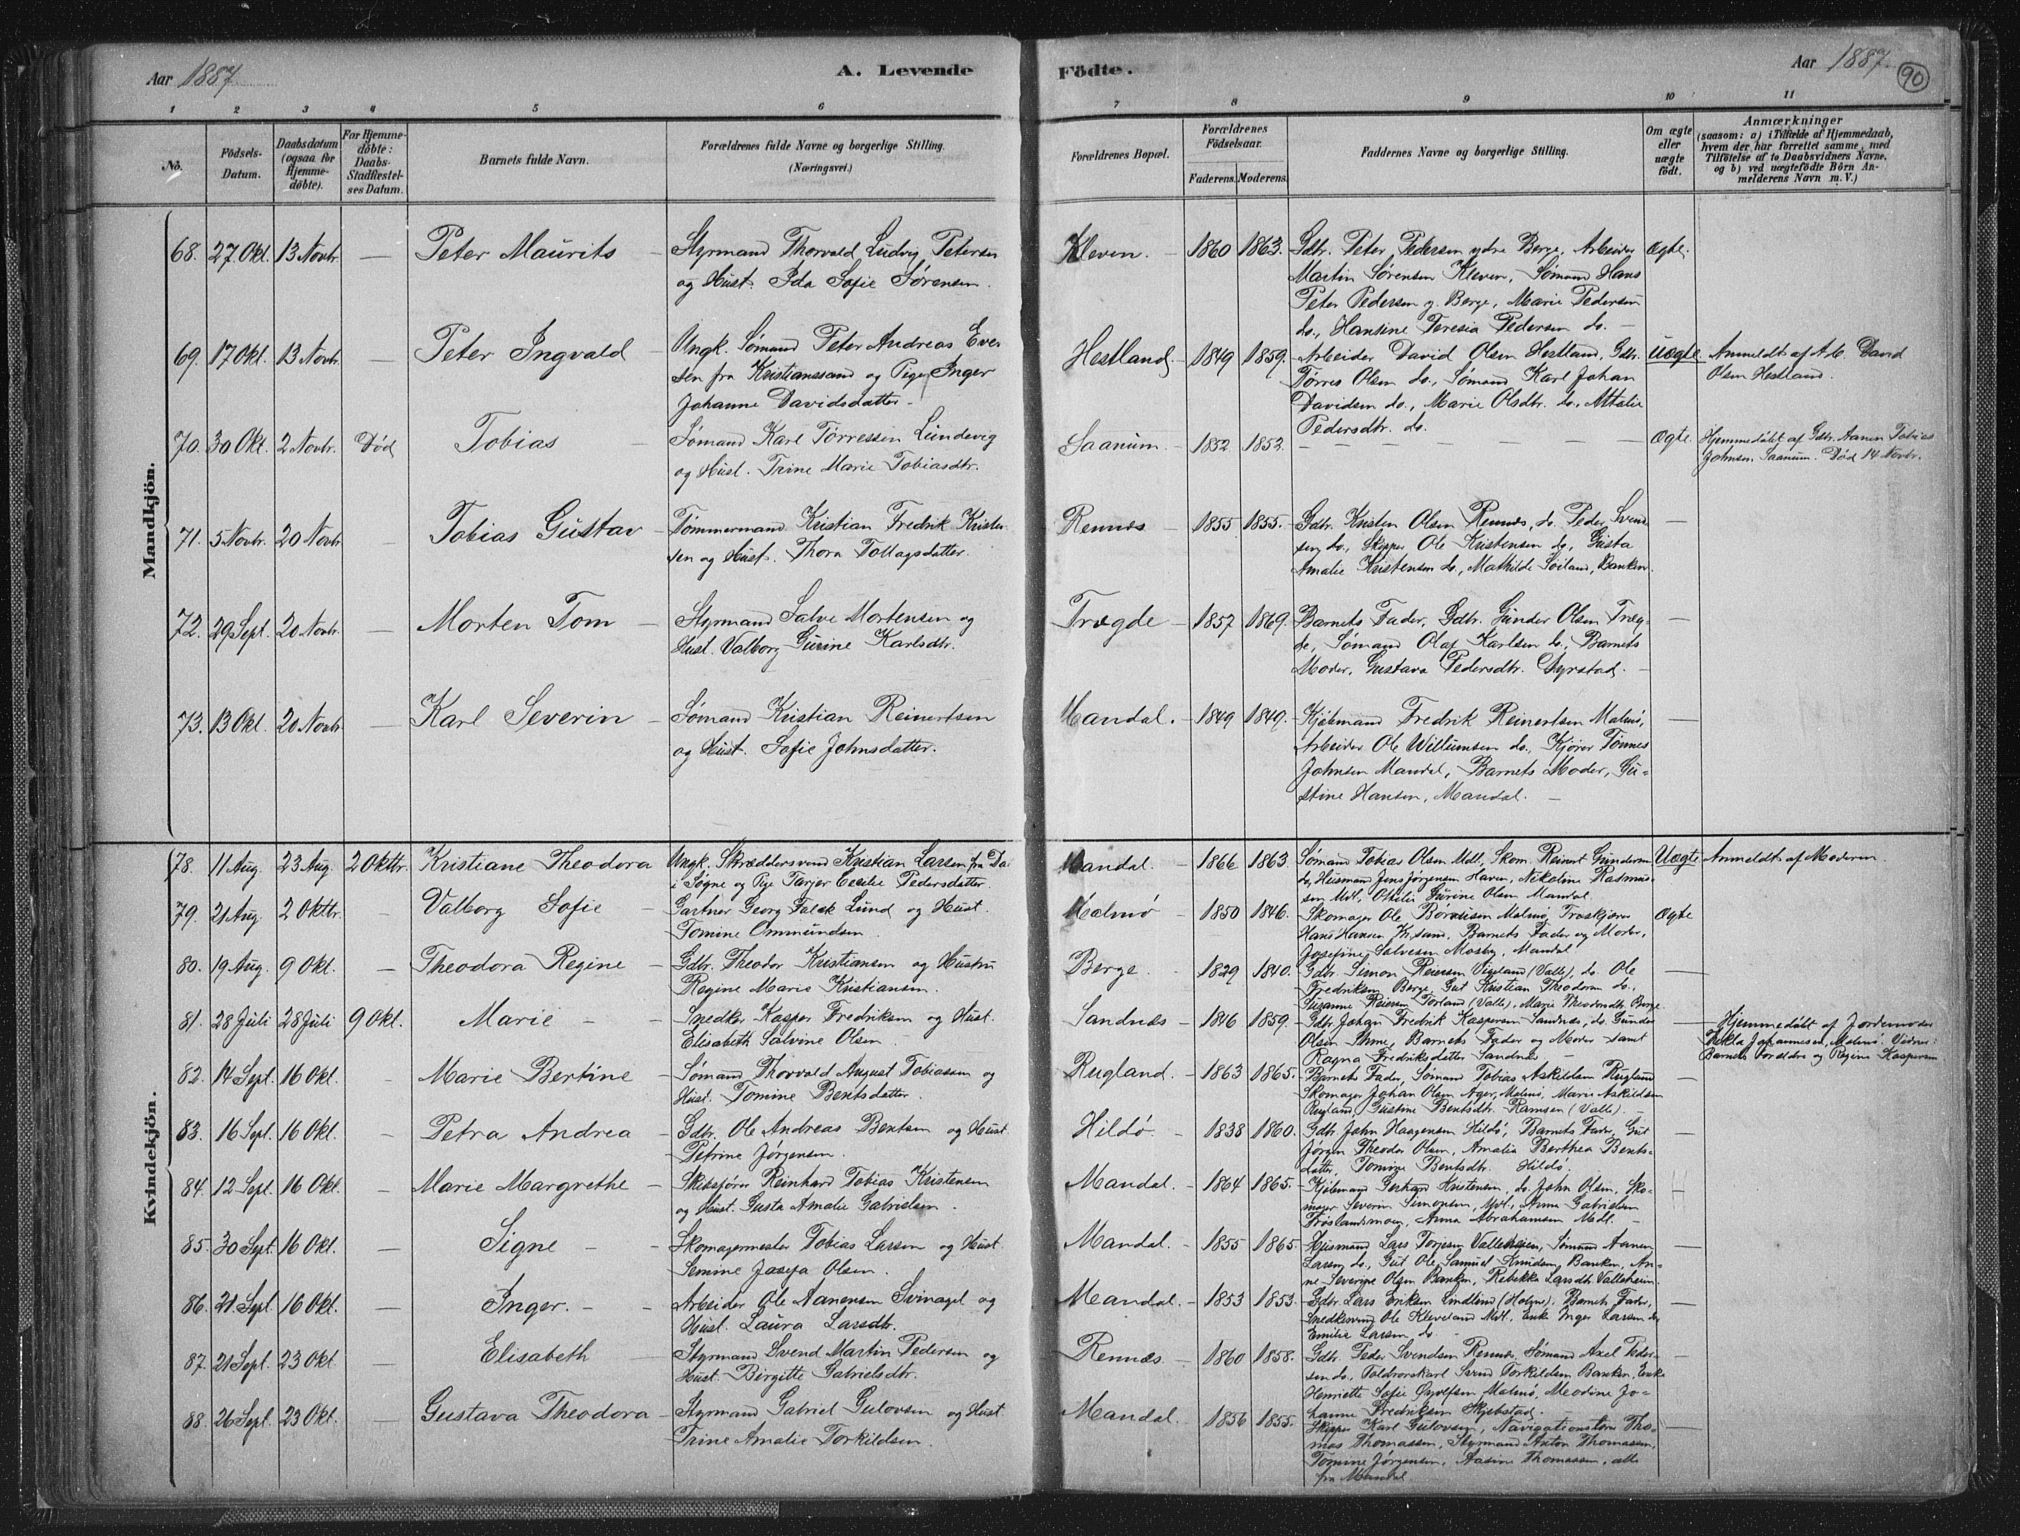 Aar 1887
A. Levende
Födte.
Aar 1887.
90
1 2 3 4 5 6 7 8 9 10 11
No. Födsels-Datum. Daabsdatum (ogsaa för Hjemmedöbte). For Hjemmedöbte: Daabs-Stadfæstelses Datum. Barnets fulde Navn. Forældrenes fulde Navne og borgerlige Stilling. (Næringsvei.)
Forældrenes Bopæl. Forældrenes Födselsaar. Faderens. Moderens. Faddernes Navne og borgerlige Stilling. Om ægte eller uægte födt. Anmærkninger (saasom: a) i Tilfælde af Hjemmedaab, hvem der har forrettet samme, med Tilföielse af to Daabsvidners Navne, og b) ved uægtefödte Börn Anmelderens Navn m. V.)
Mandkjön.
68. 27 Okt. 13 Novbr. — Peter Maurits — Styrmand Thorvald Ludvig Petersen
og Hust. Ida Sofie Sørensen.
Kleven. — 1860 1863. Gdbr. Peter Pedersen ydre Berge, Arbeider Ægte.
Martin Sørensen Kleven, Sømand Hans
Peter Pedersen y. Berge, Marie Pedersen
do., Hansine Teresia Pedersen do. —
69. 17 Okt. 13 Novbr. — Peter Ingvald — Ungk. Sømand Peter Andreas Ever
sen fra Kristianssand og Pige Inger
Johanne Davidsdatter —
Hestland — 1849 1859. Arbeider David Olsen Hestland, Gdbr. Uægte. Anmeldt af Arb. David
Tørres Olsen do., Sømand Karl Johan Olsen Hestland.
Davidsen do., Marie Olsdtr. do., Athalie
Pedersdtr. do.
70. 30 Okt. 2 Novbr. Död Tobias — Sømand Karl Tørressen Lundevig
og Hust. Trine Marie Tobiasdtr.
Saanum — 1852 1852. — — — — — — Ægte. Hjemmedöbt af Gdbr. Aanen Tobias
Johnsen Saanum. Död 14 Novbr.
71. 5 Novbr. 20 Novbr. — Tobias Gustav — Tömmermand Kristian Fredrik Kristen
sen og Hust. Thora Tollagsdatter.
Rennæs — 1855 1855. Gdbr. Kristen Olsen Rennæs, do. Peder Svend
sen do., Skipper Ole Kristensen do., Gusta
Amalie Kristensen do., Mathilde Søiland, Banken.
72. 29 Sept. 20 Novbr. — Morten Tom — Styrmand Salve Mortensen og
Hust. Valborg Gurine Karlsdtr.
Trægde — 1857 1869. Barnets Fader, Gdbr. Gunder Olsen Træg-
de, Sømand Olaf Karlsen do., Barnets
Moder, Gustava Pedersdtr. Dyrstad. —
73. 13 Okt. 20 Novbr. — Karl Severin — Sømand Kristian Reinertsen
og Hust. Sofie Johnsdatter.
Mandal. — 1849 1849. Kjøbmand Fredrik Reinertsen Malmö,
Arbeider Ole Willumsen do., Kjører Tønnes
Johnsen Mandal, Barnets Moder, Gu-
stine Hansen, Mandal. —
Kvindekjön.
78. 11 Aug. 23 Aug. 2 Oktbr. Kristiane Theodora Ungk. Skræddersvend Kristian Larsen fra
i Søgne og Pige Tarjer Cecilie Pedersdatter.
Mandal. — 1866 1863 Sømand Tobias Olsen Mdl., Skom. Reinert Gundersen Uægte Anmeldt af Moderen.
do, Husmand Jens Jørgensen Haven, Nikoline Rasmus-
sen Mdl., Othilie Gurine Olsen Mandal.
79. 21 Aug. 2 Oktbr. — Valborg Sofie — Gartner Georg Falck Lund og Hust.
Tomine Ommundsen.
Malmö — 1850 1846. Skomager Ole Malmö, Ægte
Hans Hansen Kr.sand, Barnets Fader og Moder,
Josefine Salvesen Mosby, Mandal
80. 19 Aug. 9 Okt. — Theodora Regine — Gdbr. Theodor Kristiansen og Hustru
Regine Marie Kristiansen.
Berge. — 1829 1840. Gdbr. Simon Reiersen Vigeland (Valle), do. Ole
Fredriksen Berge, Gut Kristian Theodorsen do.,
Suzanne Reiersen (Valle), Marie Berge
81. 28 Juli 28 Juli 9 Okt. Marie — — Snedker Kasper Fredriksen og Hust.
Elisabeth Salvine Olsen —
Sandnæs — 1846 1859. Gdbr. Johan Fredrik Kaspersen Sandnæs, do. Gunder Hjemmedöbt af Jordemoder
Olsen Barnets Fader og Moder samt Johannesen, Malmö. Vidner:
Ragna Fredriksdatter Sandnæs — Barnets Forældre og Regine Kaspersen
82. 14 Sept. 16 Okt. — Marie Bertine Sømand Thorvald August Tobiassen og
Hust. Tomine Bentsdatter.
Rugland. — 1863 1865. Barnets Fader, Sømand Tobias Askildsen Rugland
Skomager Johan Olsen Ager, Malmö, Marie Askildsen
Rugland, Gustine Bentsdtr. Ramsen (Valle). —
83. 16 Sept. 16 Okt. — Petra Andrea — Gdbr. Ole Andreas Bentsen og Hust.
Petrine Jørgensen.
Hildö. — 1838 1860. Gdbr. John Haagensen Hildö, Barnets Fader, Gut
Jørgen Theodor Olsen, Amalia Berthea Bents-
datter, Tomine Bentsdtr. Hildö.
84. 12 Sept. 16 Okt. — Marie Margrethe — Skibsfører Reinhard Tobias Kristensen
og Hust. Gusta Amalie Gabrielsen.
Mandal. — 1864 1865. Kjøbmand Gerhard Kristensen, do. John Olsen, Sko-
mager Severin Simonsen, Mdl., Anna Gabrielsen
Frøslandsmoen, Anna Abrahamsen Mdl. —
85. 30 Sept. 16 Okt. — Signe — — Skomagermester Tobias Larsen og Hust.
Semine Josefa Olsen.
Mandal. — 1855 1865. Husmand Lars Torjesen Valleheien, Sømand Aanen
Larsen do., Gut Ole Samuel Knudsen Banken, An-
ne Severine Olsen Banken, Rebekka Larsdtr. Valleheien.
86. 21 Sept. 16 Okt. — Inger. — — Arbeider Ole Aanensen Svinagel og
Hust. Laura Larsdtr.
Mandal. — 1853 1853. Gdbr. Lars Eriksen Lindland (Holme). Barnets Fader,
Snedkersvend Ole Kleveland Mdl. Enke Inger Larsen do.
Emilie Larsen do —
87. 21 Sept. 23 Okt — Elisabeth — Styrmand Svend Martin Pedersen og
Hust. Birgitte Gabrielsdtr.
Rennæs — 1860 1858. Gdbr. Peder Svendsen Rennæs, Sømand Axel Peder-
sen do., Svend Torkildsen Banken, Enke
Henriette Sofie Malmö, Meodine Jo-
hanne Fredriksen Skjebstad. —
88. 26 Sept. 23 Okt. — Gustava Theodora — Styrmand Gabriel Gulovsen og Hust
Trine Amalie Torkildsen.
Mandal. 1856 1855. Skipper Karl Gulovsen, Tho-
mas Thomassen, Styrmand Anton Thomassen,
Tomine Jørgensen, Aasine Thomassen, alle
fra Mandal